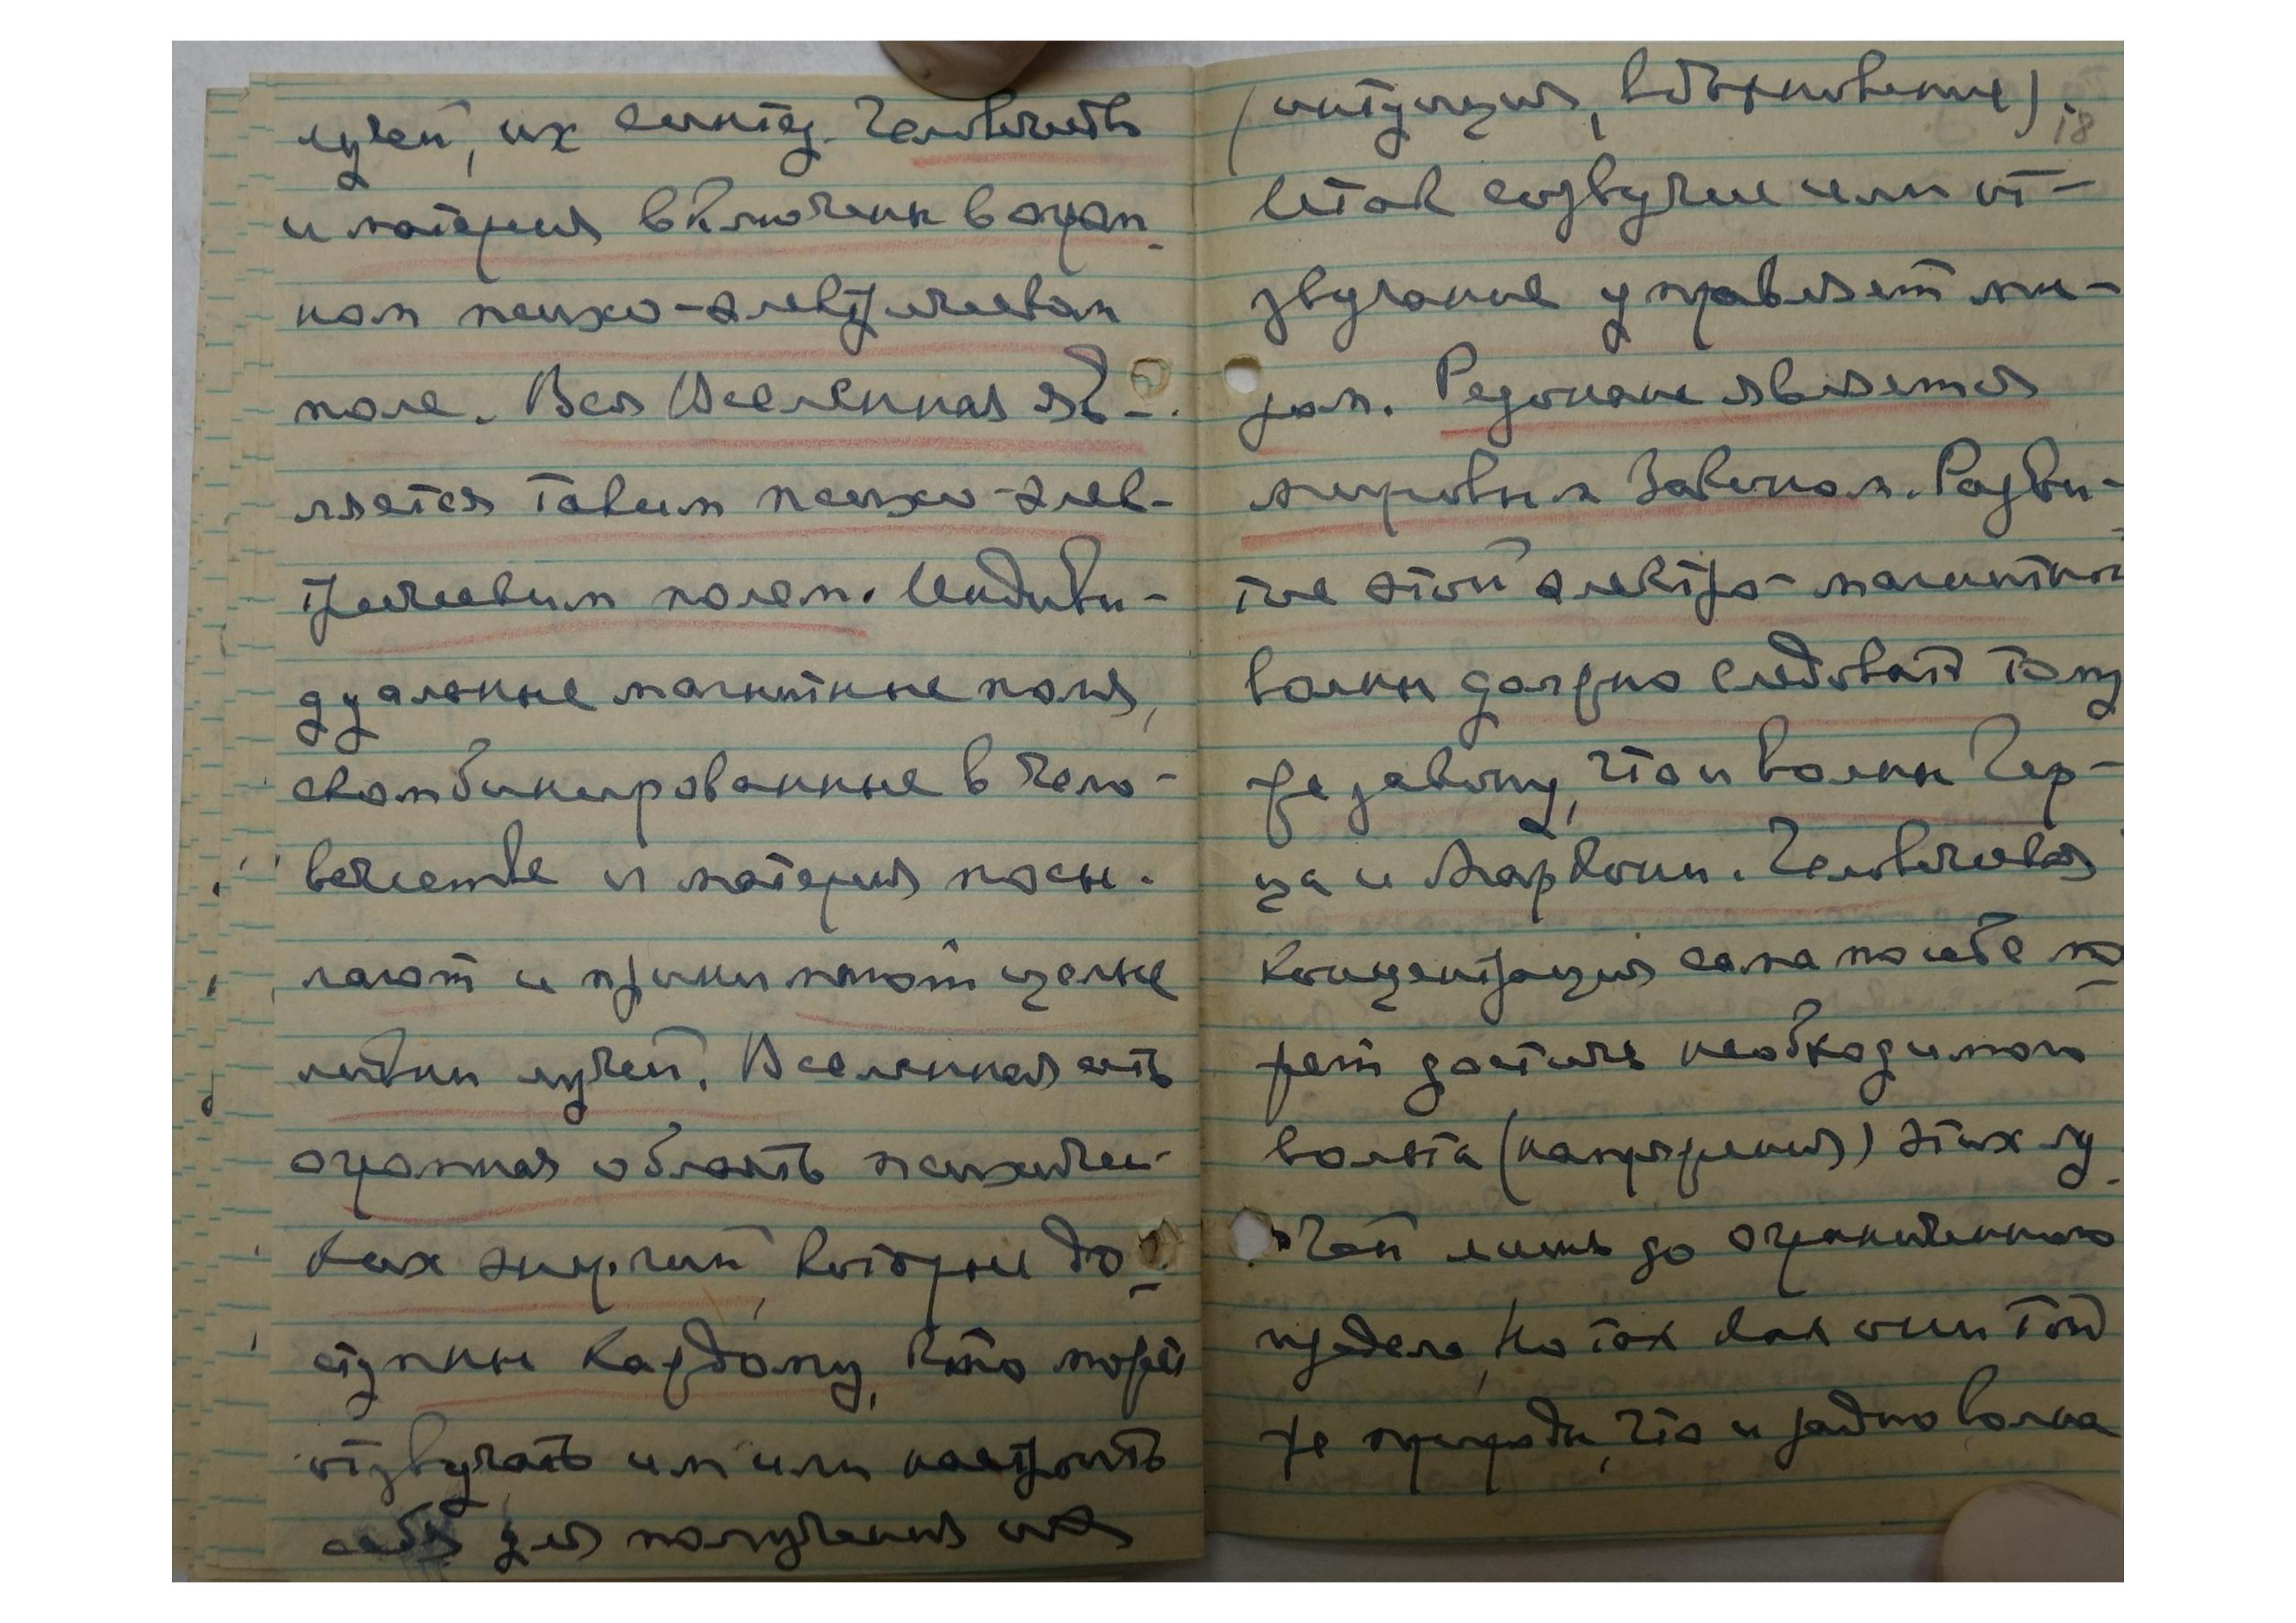 лучей, их синтез. Человечество
и материя включены в огром-
ном психо-электрическом
поле. Вся Вселенная яв-
ляется таким психо-элек-
трическим полем. Индиви-
дуальные магнитные поля,
скомбинированные в чело-
вечестве и материя посы-
лают и принимают целые
ливни лучей. Вселенная есть
огромная область психичес-
ких энергий, которые до-
ступны каждому, кто может
отзвучать им или настроить
себя для получения их
(интуиция, вдохновение).
18
Итак созвучие или от-
звучание управляет ми-
ром. Резонанс является
мировым Законом. Разви-
тие этой электро-магнитной
волны должно следовать тому
же закону, что и волны Гер-
ца и Маркони. Человеческая
концентрация сама по себе мо-
жет достичь необходимого
вольта (напряжения) этих лу-
чей лишь до ограниченного
предела, но так как они той
же природы, что и радио волна